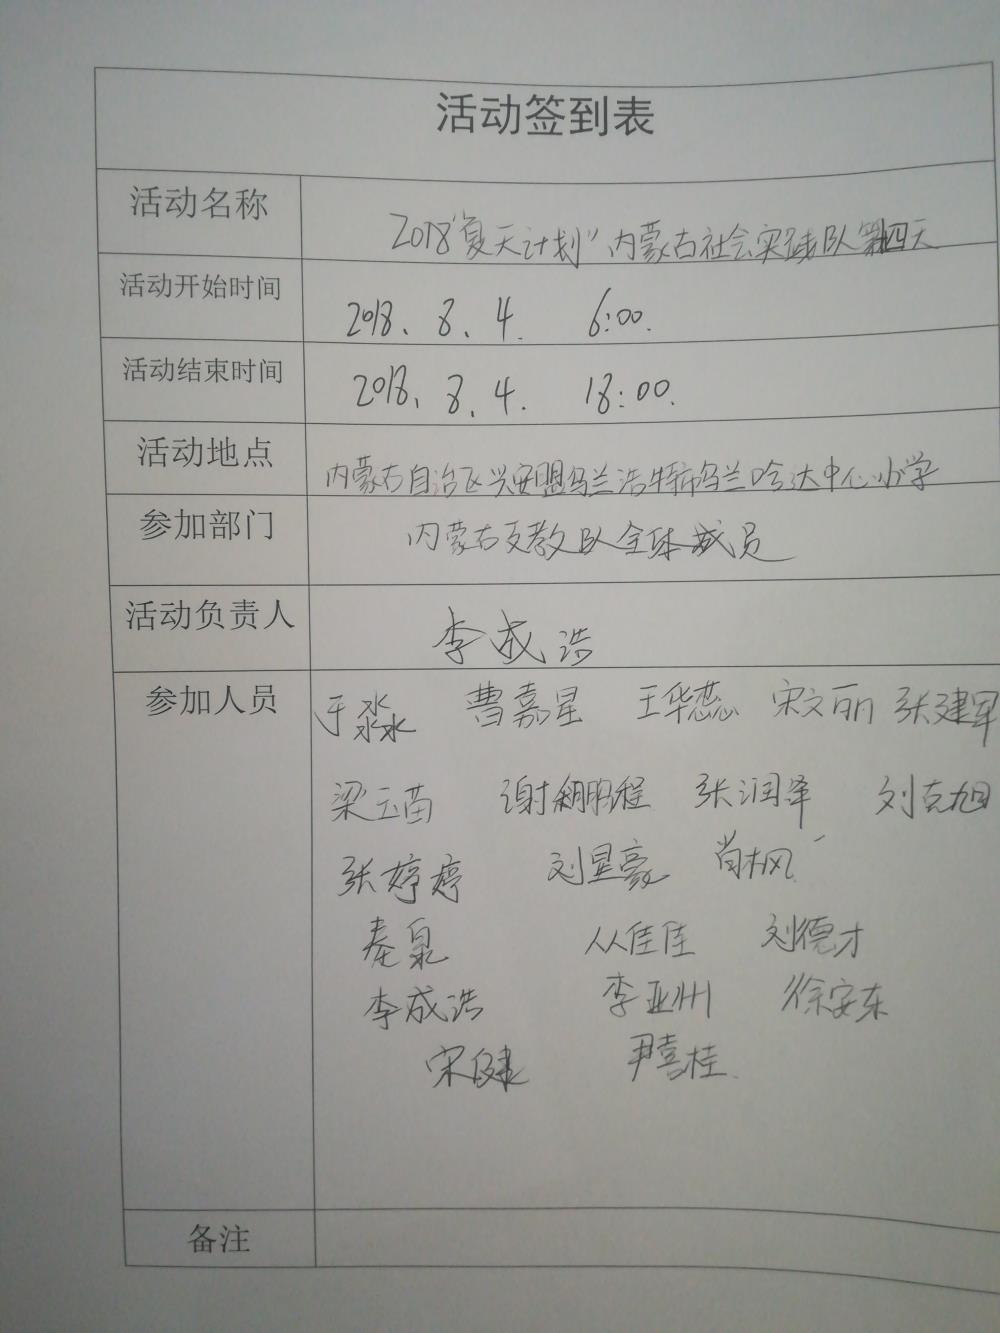 活动签到表
活动名称 2018"夏天计划"内蒙古社会实践队第四天
活动开始时间 2018. 8. 4. 6:00.
活动结束时间 2018. 8. 4. 18:00.
活动地点 内蒙古自治区兴安盟乌兰浩特市乌兰哈达中心小学
参加部门 内蒙古支教队全体成员
活动负责人 李成浩
参加人员 于淼 曹嘉星 王华蕊 宋文丽 张建军
梁玉苗 谢鹏程 张润泽 刘克旭
张婷婷 刘显豪 肖枫
秦泉 从佳佳 刘德才
李成浩 李亚州 徐安东
宋健 尹喜桂
备注